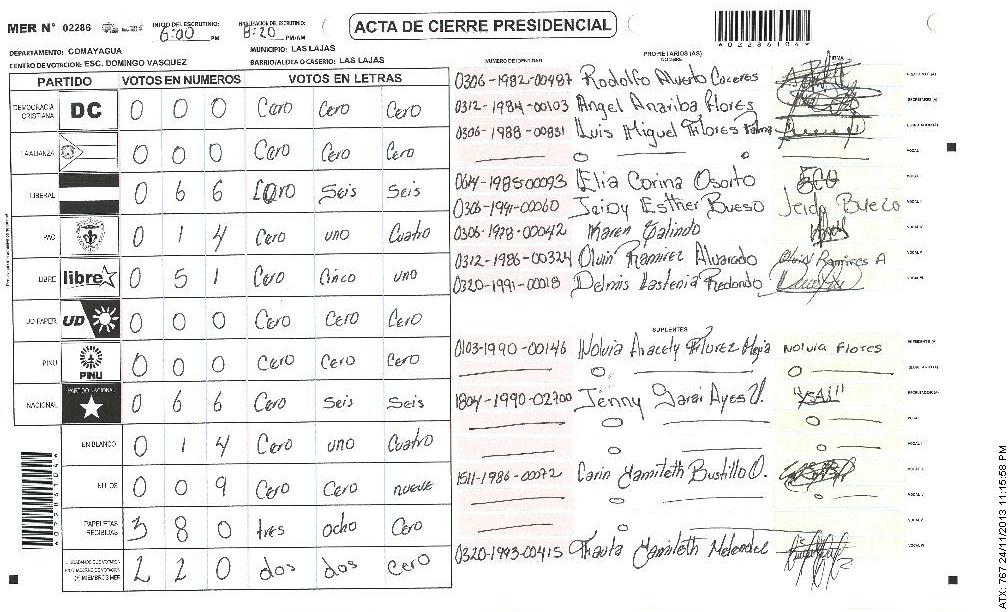 MER N° 02286 INICIO DEL ESCRUTINIO: 6:00 PM 8:20 PM/AM
ACTA DE CIERRE PRESIDENCIAL
DEPARTAMENTO: COMAYAGUA MUNICIPIO: LAS LAJAS
CENTRO DE VOTACION: ESC. DOMINGO VASQUEZ BARRIO/ALDEA O CASERIO: LAS LAJAS
PARTIDO VOTOS EN NUMEROS VOTOS EN LETRAS
DEMOCRACIA CRISTIANA DC 0 0 0 Cero Cero Cero
LA ALIANZA 0 0 0 Cero Cero Cero
LIBERAL 0 6 6 Cero Seis Seis
PAC 0 1 4 Cero uno Cuatro
LIBRE libre 0 5 1 Cero Cinco uno
UD FAPER UD 0 0 0 Cero Cero Cero
PINU PINU 0 0 0 Cero Cero Cero
NACIONAL PARTIDO NACIONAL 0 6 6 Cero Seis Seis
EN BLANCO 0 1 4 Cero uno Cuatro
NULOS 0 0 9 Cero Cero nueve
PAPELETAS RECIBIDAS 3 8 0 tres ocho Cero
2 2 0 dos dos Cero
NUMERO DE IDENTIDAD PROPIETARIOS (AS) NOMBRE FIRMA
0306-1982-00487 Rodolfo Alverto Caceres
0312-1984-00103 Angel Anariba Flores
0306-1988-00831 Luis Miguel Flores Palma
0614-1985-00093 Elia Corina Osorto
0306-1991-00060 Jeidy Esther Bueso Jeidy Bueso
0306-1978-00042 Karen Galindo
0312-1986-00324 Olvin Ramirez Alvarado Olvin Ramires A
0320-1991-00018 Delmis Hastenia Redondo
SUPLENTES
0103-1990-00146 Nolvia Aracely Florez Mejia Nolvia Flores
1804-1990-02700 Jenny Sarai Ayes U. "YSAI"
1511-1986-00072 Carin Yamileth Bustillo O.
0320-1993-00415 Yamileth Melendez
ATX: 767 24/11/2013 11:15:58 PM